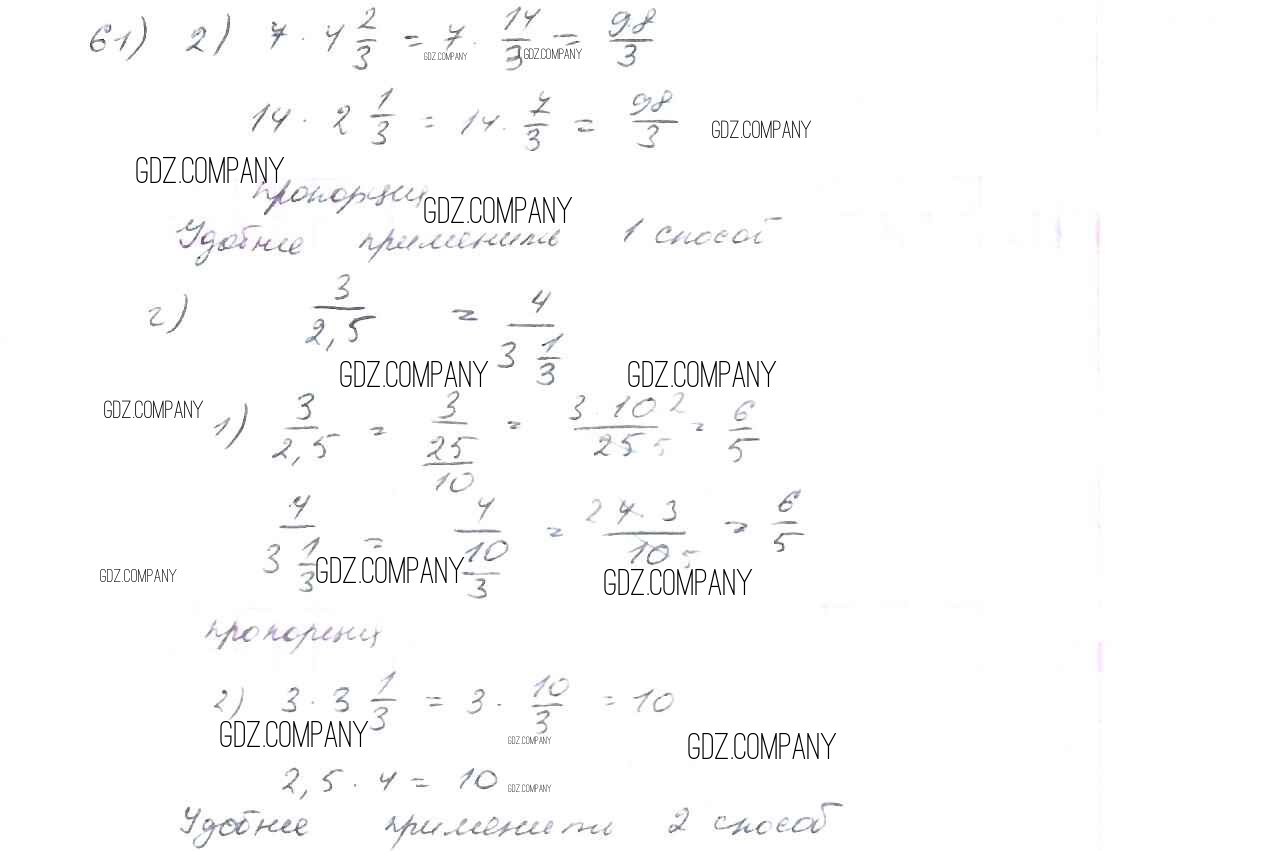 61) 2) 7 · 4 2/3 = 7 · 14/3 = 98/3
GDZ.COMPANY GDZ.COMPANY
14 · 2 1/3 = 14 · 7/3 = 98/3 GDZ.COMPANY
GDZ.COMPANY
GDZ.COMPANY
Удобнее применить 1 способ
г) 3/2,5 = 4/(3 1/3)
GDZ.COMPANY GDZ.COMPANY
GDZ.COMPANY
1) 3/2,5 = 3/(25/10) = 3·10 2/25 5 = 6/5
4/(3 1/3) = 4/(10/3) = 2 4·3/10 5 = 6/5
GDZ.COMPANY GDZ.COMPANY GDZ.COMPANY
2) 3 · 3 1/3 = 3 · 10/3 = 10
GDZ.COMPANY GDZ.COMPANY GDZ.COMPANY
2,5 · 4 = 10 GDZ.COMPANY
Удобнее применити 2 способ